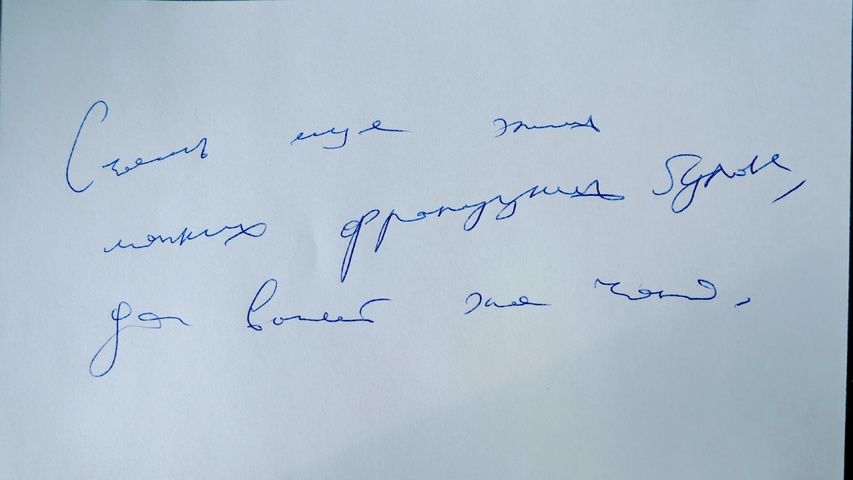 Съешь ещё этих
мягких французских булок,
да выпей же чаю.